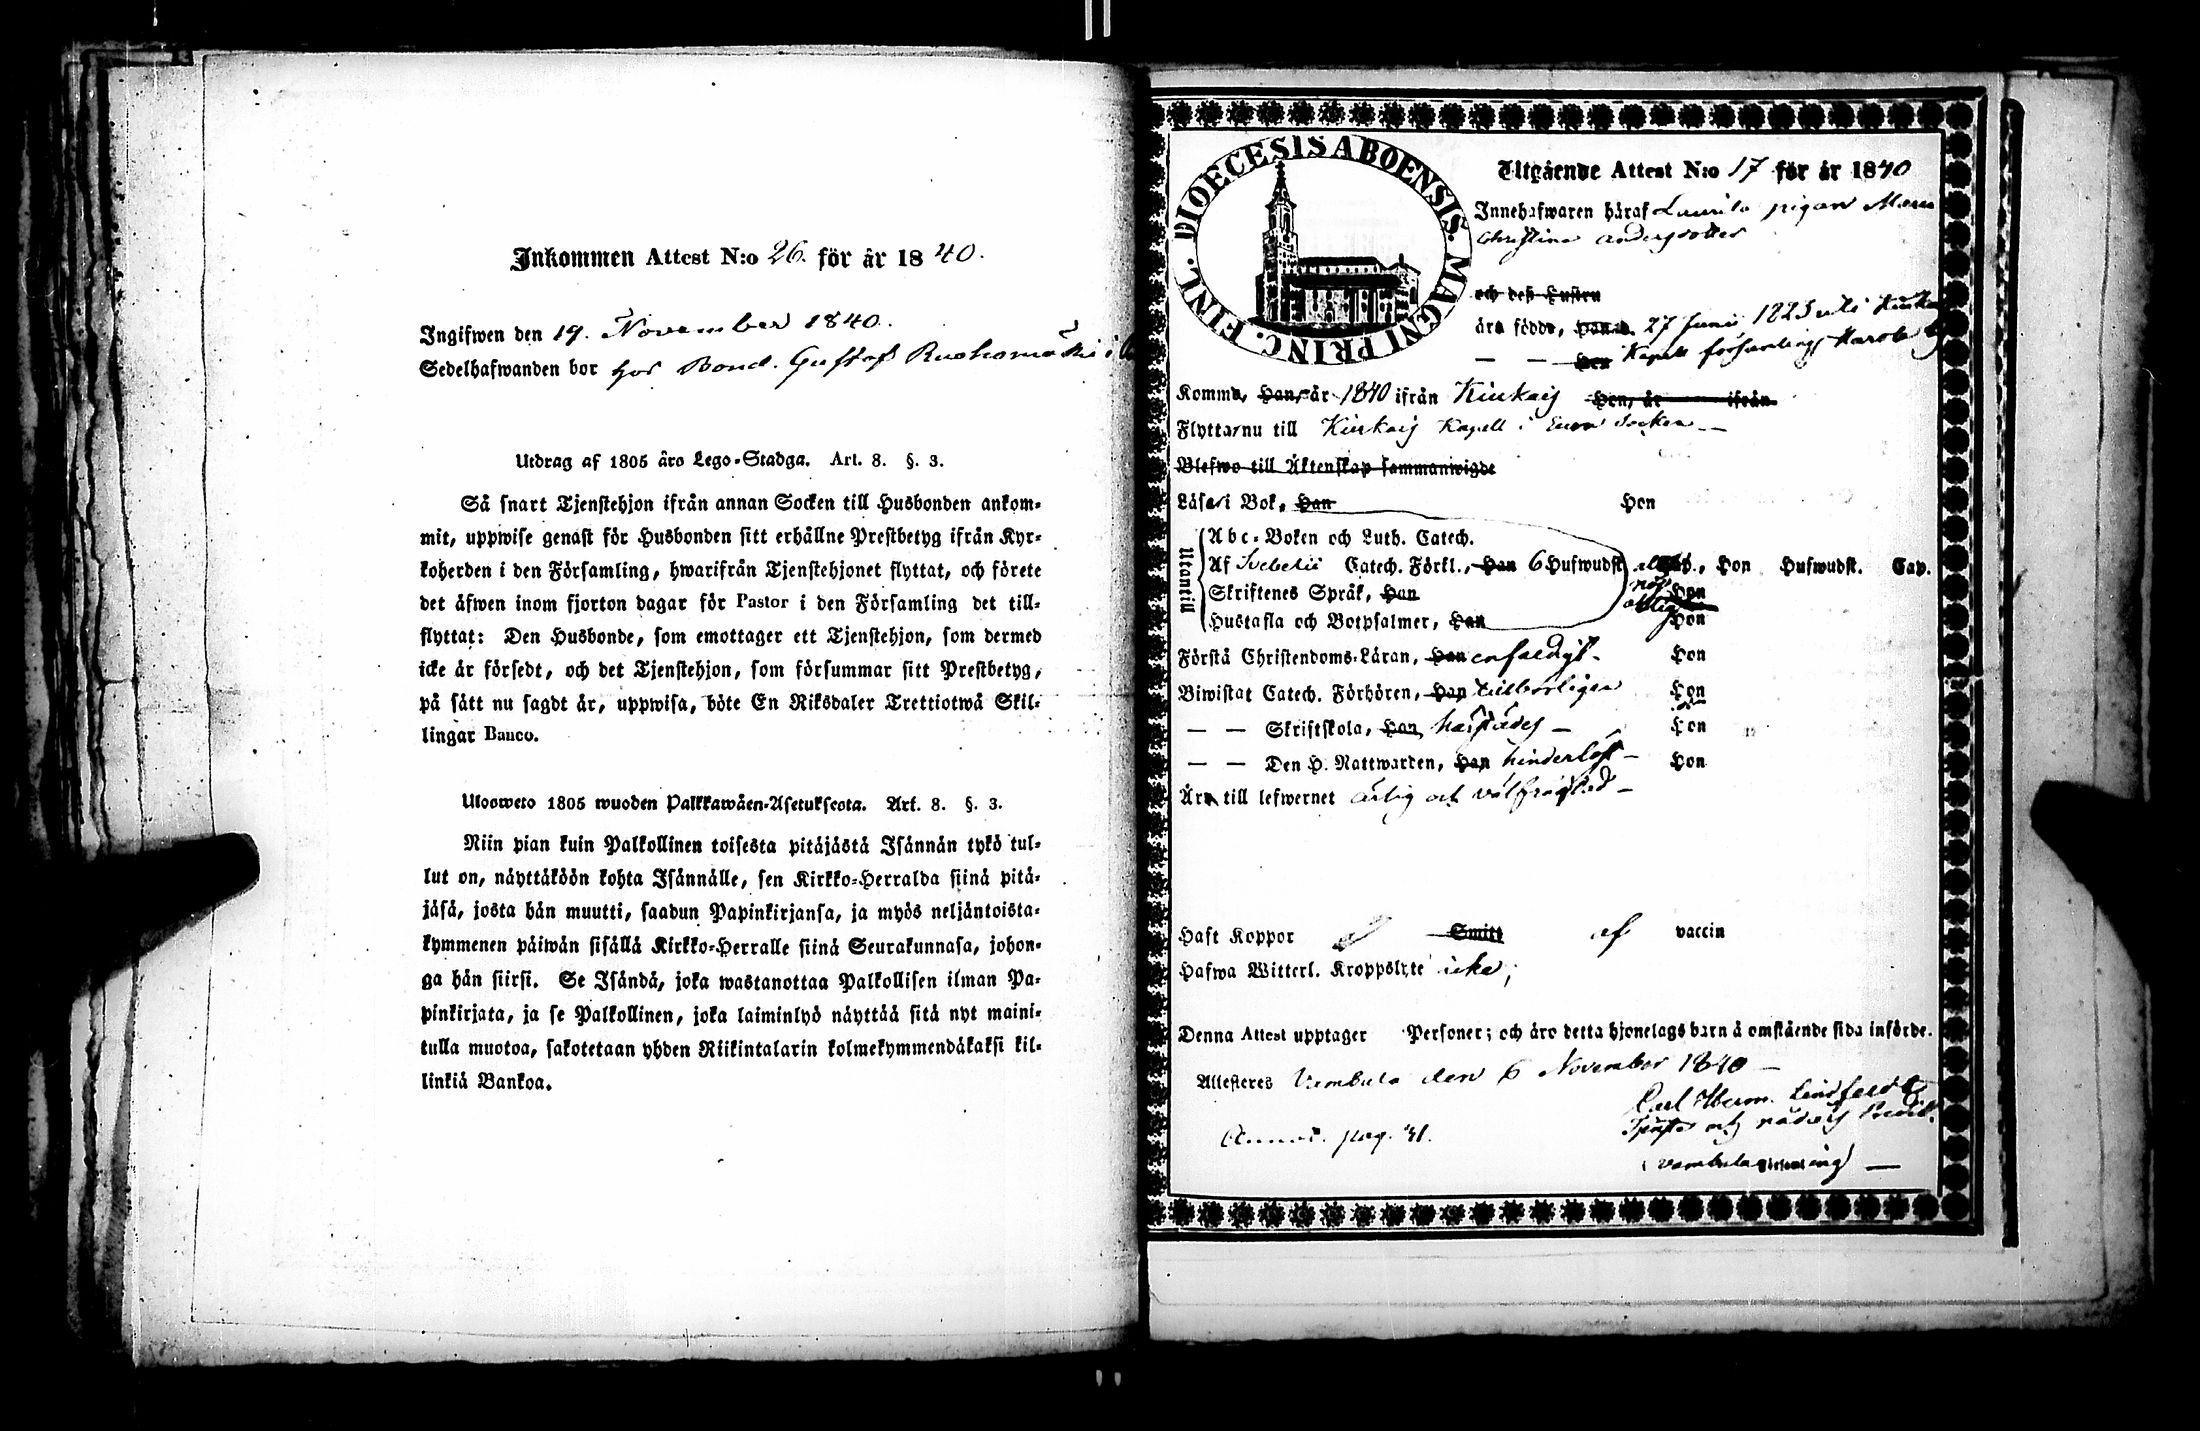 Inkommen Attest N:o 26. för år 1840.
Ingifwen den 19. November 1840.
Sedelhafwanden bor hos Bond. Gustaf Ruohomäki i
Utdrag af 1805 års Lego-Stadga. Art. 8. §. 3.
Så snart Tjenstehjon ifrån annan Socken till Husbonden ankom-
mit, uppwise genast för Husbonden sitt erhållne Prestbetyg ifrån Kyr-
koherden i den Församling, hwarifrån Tjenstehjonet flyttat, och förete
det äfwen inom fjorton dagar för Pastor i den Församling det till-
flyttat: Den Husbonde, som emottager ett Tjenstehjon, som dermed
icke är försedt, och det Tjenstehjon, som försummar sitt Prestbetyg,
på sätt nu sagdt är, uppwisa, böte En Riksdaler Trettiotwå Skil-
lingar Banco.
Ulosweto 1805 wuoden Palkkawäen-Asetuksesta. Art. 8. §. 3.
Niin pian kuin Palkollinen toisesta pitäjästä Isännän tykö tul-
lut on, näyttäköön kohta Isännälle, sen Kirkko-Herralda siinä pitä-
jäsä, josta hän muutti, saadun Papinkirjansa, ja myös neljäntoista-
kymmenen päiwän sisällä Kirkko-Herralle siinä Seurakunnasa, johon-
ga hän siirsi. Se Isändä, joka wastanottaa Palkollisen ilman Pa-
pinkirjata, ja se Palkollinen, joka laiminlyö näyttää sitä nyt maini-
tulla muotoa, sakotetaan yhden Riikintalarin kolmekymmendäkaksi kil-
linkiä Bankoa.
DIOECESIS ABOENSIS. MAGNI PRINC. FINL.
Utgående Attest N:o 17 för år 1840
Innehafwaren häraf Laurila pigan Maria
Christina Andersdotter
och deß Hustru
äro födde, Han d. 27 Junii 1823 uti
— — Hon Kapell församling
Komma, Han, år 1840 ifrån Kiukais Hon, år ifrån
Flyttar nu till Kiukais Kapell i Eura Socken —
Blefwo till Äktenskap sammanwigde
Läsa i Bok, Han Hon
Utantill
Abc-Boken och Luth. Catech.
Af Svebelii Catech. Förkl., Han 6 Hufwudst. , Hon Hufwudst. Cap.
Skriftenes Språk, Han Hon
Hustafla och Botpsalmer, Han Hon
Förstå Christendoms-Läran, Han enfaldigt. Hon
Biwistat Catech. Förhören, Han tillbörligen Hon
— — Skriftskola, Han härstädes — Hon
— — Den H. Nattwarden, Han hinderlöst — Hon
Äro till lefwernet ärlig och välfrägdad —
Haft Koppor Smitt af vaccin
Hafwa Witterl. Kroppslyte icke;
Denna Attest upptager Personer; och äro detta hjonelags barn å omstående sida införde.
Attesteres Vembula den 6 November 1840 —
Carl Herm. Lindfeldt
pag. 41.